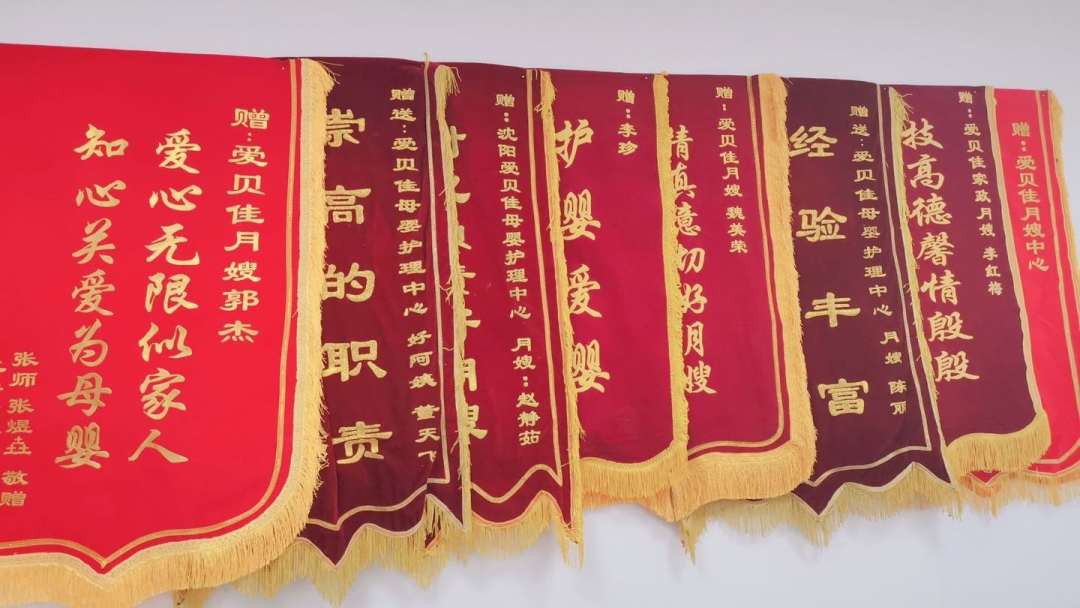 赠：爱贝佳月嫂郭杰
爱心无限似家人
知心关爱为母婴
张师 张煜垚 敬赠
赠送：爱贝佳母婴护理中心 好阿姨 董天飞
崇高的职责
赠：沈阳爱贝佳母婴护理中心 月嫂：赵静茹
赠：李珍
护婴爱婴
赠：爱贝佳月嫂 魏美荣
情真意切好月嫂
赠送：爱贝佳母婴护理中心 月嫂 陈丽
经验丰富
赠：爱贝佳家政月嫂 李红梅
技高德馨情殷殷
赠：爱贝佳月嫂中心